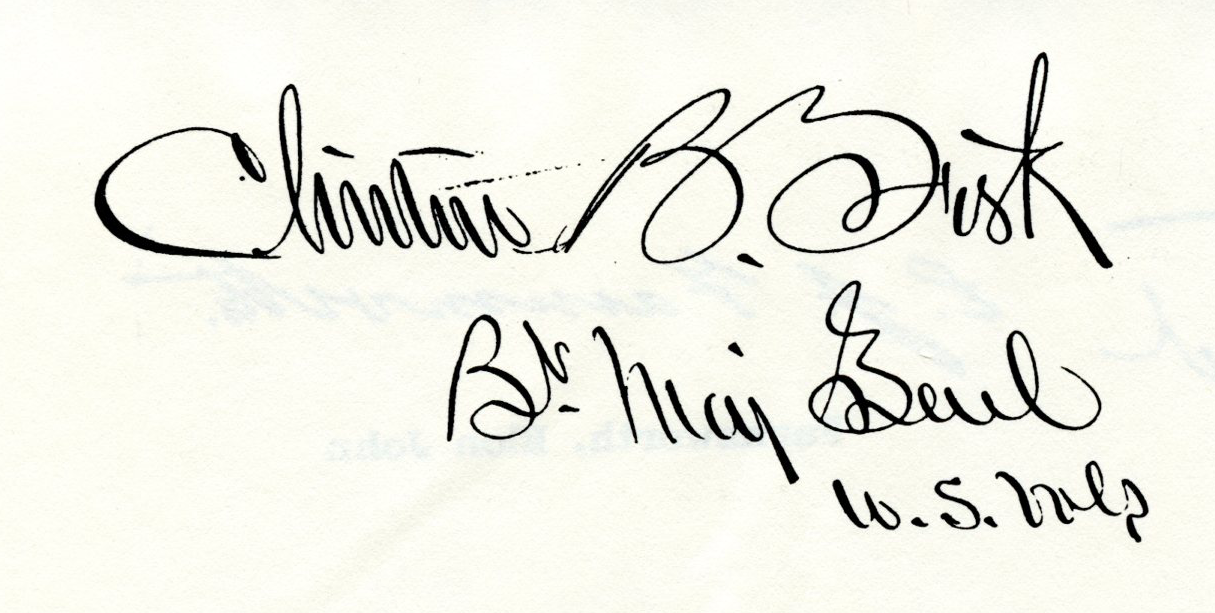 Clinton B. Fisk
Bv. Maj Genl
U.S. Vols